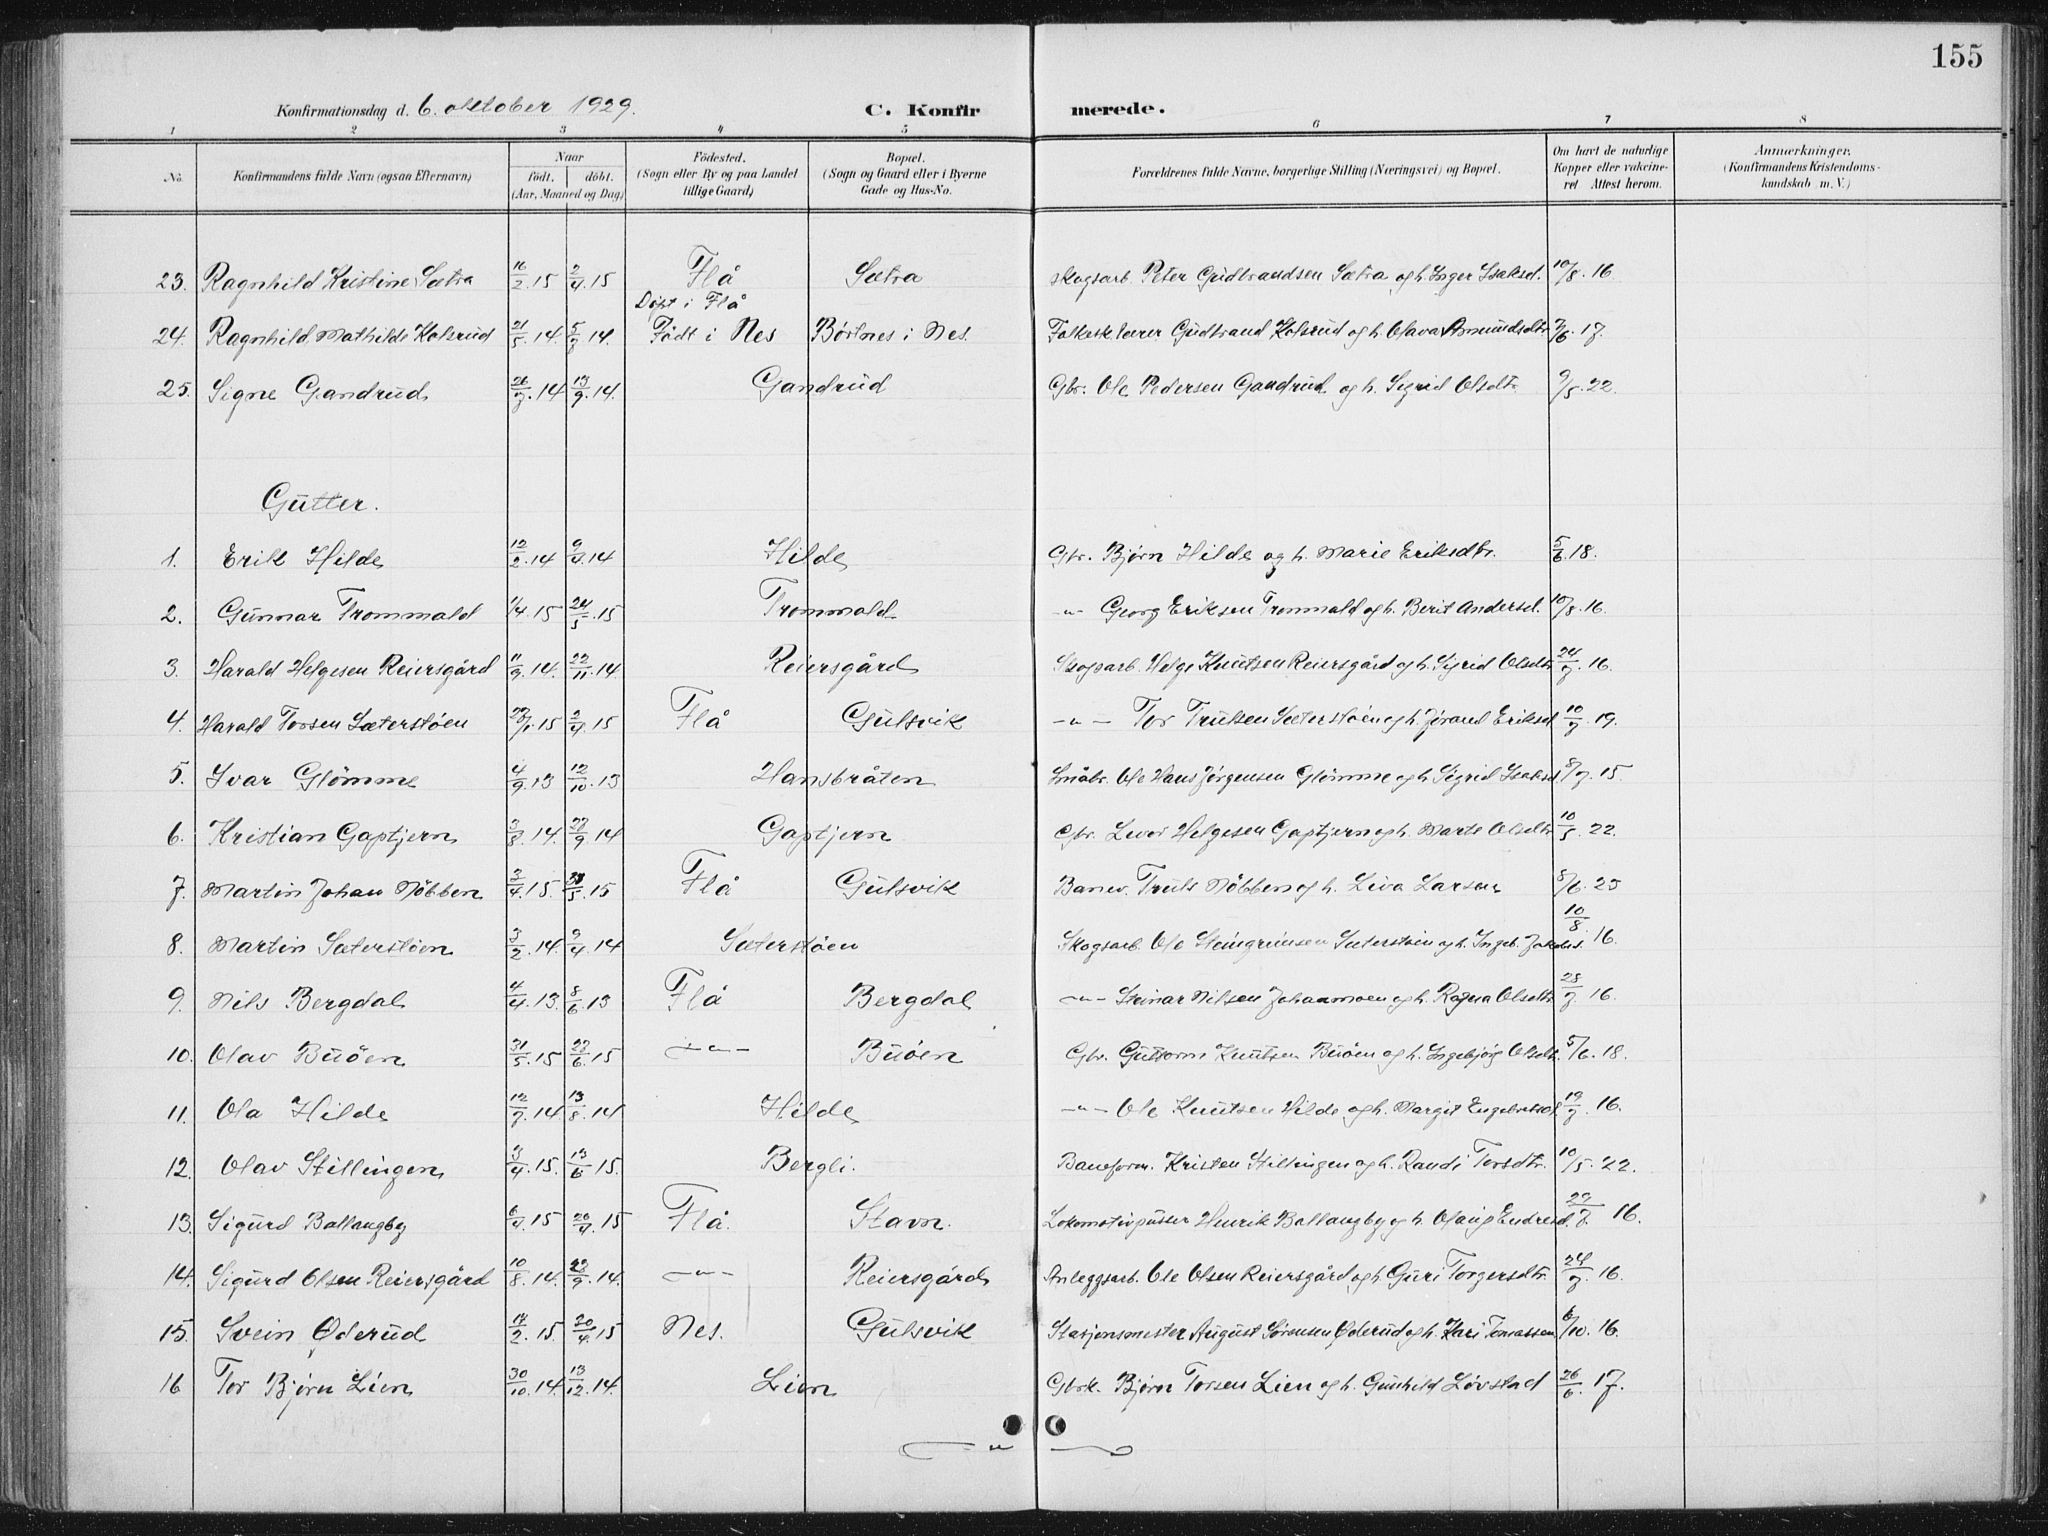 155
Konfirmationsdag d. 6. oktober 1929. C. Konfirmerede.
1 2 3 4 5 6 7 8
No. Konfirmandens fulde Navn (ogsaa Efternavn) Naar født. døbt. (Aar, Maaned og Dag) Fødested. (Sogn eller By og paa Landet tillige Gaard) Bopæl. (Sogn og Gaard eller i Byerne Gade og Hus-No. Forældrenes fulde Navne, borgerlige Stilling (Næringsvei) og Bopæl. Om havt de naturlige Kopper eller vakcineret Attest herom. Anmærkninger. (Konfirmandens Kristendomskundskab m. V.)
23. Ragnhild Kristine Sætra 16/2.15 2/4.15 Flå Sætra Skogsarb. Peter Gudbrandsen Sætra og h. Inger Isaksd. 10/8.16
Døpt i Flå
24. Ragnhild Mathilde Kolsrud 21/5.14. 5/7.14. Født i Nes Børtnes i Nes. Folkesk. lærer Gudbrand Kolsrud og h. Olava Amundsdtr. 7/6.17.
25. Signe Gandrud 26/7.14 13/9.14. Gandrud Gbr. Ole Pedersen Gandrud og h. Sigrid Olsdtr. 9/5.22.
Gutter.
1. Erik Hilde 12/2.14 9/4.14 Hilde Gbr. Bjørn Hilde og h. Marie Eriksdtr. 5/6.18.
2. Gunnar Trommald 1/4.15 24/5.15 Trommald -"- Georg Eriksen Trommald og h. Berit Andersd. 10/8.16.
3. Harald Helgesen Reiersgård 11/9.14. 22/11.14 Reiersgård Skogsarb. Helge Knutsen Reiersgård og h. Sigrid Olsdtr. 24/7.16.
4. Harald Torsen Sæterstøen 15 2/4.15 Flå Gulsvik -"- Tor Trulsen Sæterstøen og h. Jørand Eriksd. 10/7.19.
5. Ivar Glömme 4/9.13 12/10.13 Hansbråten Småbr. Ole Hans Jørgensen Glömme og h. Sigrid Isaksd. 8/7.15.
6. Kristian Gaptjern 3/8.14. 27/9.14 Gaptjern Gbr. Levor Helgesen Gaptjern og h. Marte Olsdtr. 10/5.22.
7. Martin Johan Nöbben 3/4.15. 5.15 Flå Gulsvik Banev. Truls Nöbben og h. Liva Larsen 8/6.25
8. Martin Sæterstöen 3/2.14. 9/4.14 Sæterstöen Skogsarb. Ole Steingrimsen Sæterstöen og h. Ingeb. 10/8.16.
9. Nils Bergdal 4/4.13. 8/6.13 Flå Bergdal -"- Steinar Nilsen Johanmoen og h. Ragna Olsdtr. 25/7.16.
10. Olav Buöen 31/5.15 27/6.15 -"- Buöen Gbr. Guttorm Knutsen Buöen og h. Ingebjørg Olsdtr. 5/6.18.
11. Ola Hilde 12/7.14 13/8.14 Hilde -"- Ole Knutsen Hilde og h. Margit Engebretsd. 12/7.16.
12. Olav Stillingen 3/4.15. 13/6.15. Bergli. Baneform. Kristen Stillingen og h. Randi Torsdtr. 10/5.22.
13. Sigurd Ballangby 6/4.15 15 Flå. Stavn. Lokomotivpusser Henrik Ballangby og h. Olaug Endresd. 29/7.16.
14. Sigurd Olsen Reiersgård 10/8.14. 9.14. -"- Reiersgård Anleggsarb. Ole Olsen Reiersgård og h. Guri Torgersdtr. 24/7.16.
15. Svein Øderud 17/2.15. 20/4.15 Nes. Gulsvik Stasjonsmester August Sørensen Øderud og h. Kari Tomassen 6/10.16.
16 Tor Bjørn Lien 30/10.14. 13/12.14. Lien Gbrk. Bjørn Torsen Lien og h. Gunhild Løvstad 26/6.17.
-"-